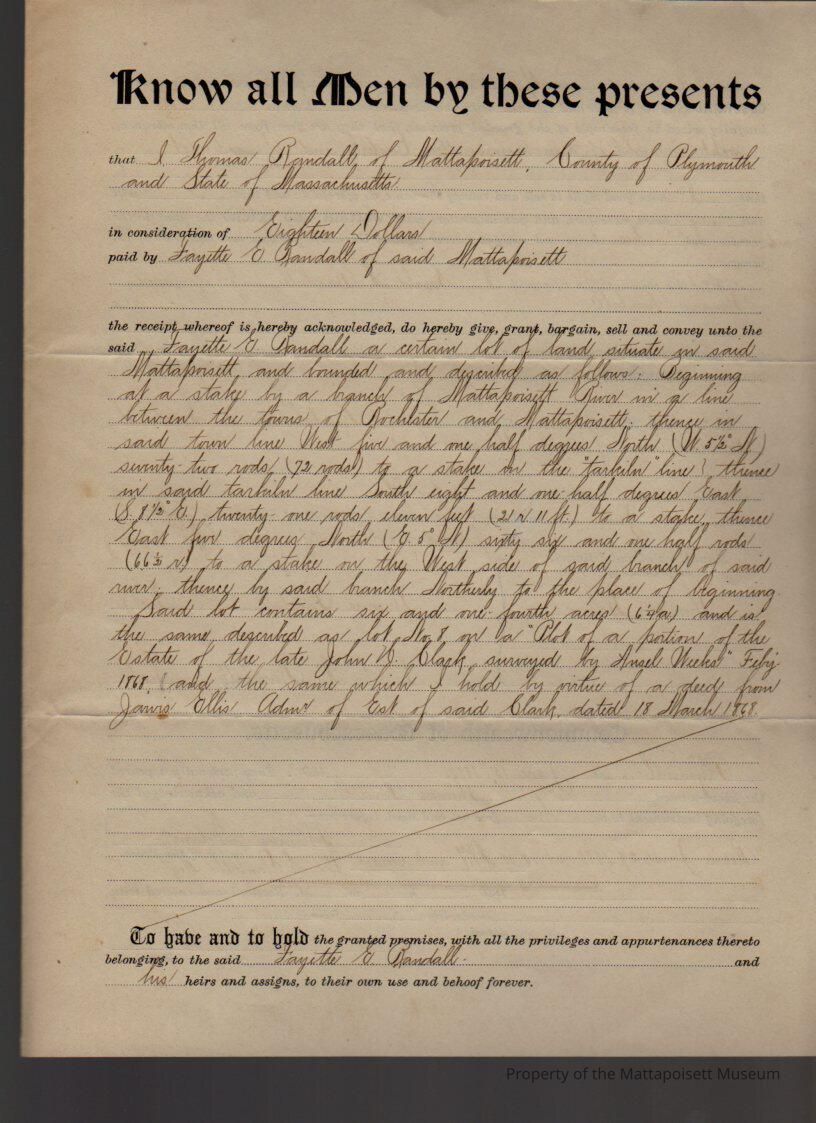 Know all Men by these presents
that I Thomas Randall of Mattapoisett, County of Plymouth
and State of Massachusetts
in consideration of Eighteen Dollars
paid by Fayette E Randall of said Mattapoisett
the receipt whereof is hereby acknowledged, do hereby give, grant, bargain, sell and convey unto the
said Fayette E Randall a certain lot of land situate in said
Mattapoisett, and bounded and described as follows: Beginning
at a stake by a branch of Mattapoisett River in a line
between the towns of Rochester and Mattapoisett; thence in
said town line West five and one half degrees North (W 5½° N)
seventy-two rods (72 rods) to a stake in the "tarkiln" line; thence
in said tarkiln line South eight and one half degrees East
(S 8½° E.) twenty-one rods eleven feet (21 r 11 ft.) to a stake, thence
East five degrees North (E 5° N) sixty six and one half rods
(66½ r) to a stake on the West side of said branch of said
river, thence by said branch Northerly to the place of beginning.
Said lot contains six and one-fourth acres (6¼ a) and is
the same described as lot No. 8 on a "Plot of a portion of the
Estate of the late John Clark, surveyed by Ansel Weeks" Feb'y
1868, and the same which I hold by virtue of a deed from
Jarvis Ellis Admr of Est. of said Clark, dated 18 March 1868.
To have and to hold the granted premises, with all the privileges and appurtenances thereto
belonging, to the said Fayette E Randall and
his heirs and assigns, to their own use and behoof forever.
Property of the Mattapoisett Museum